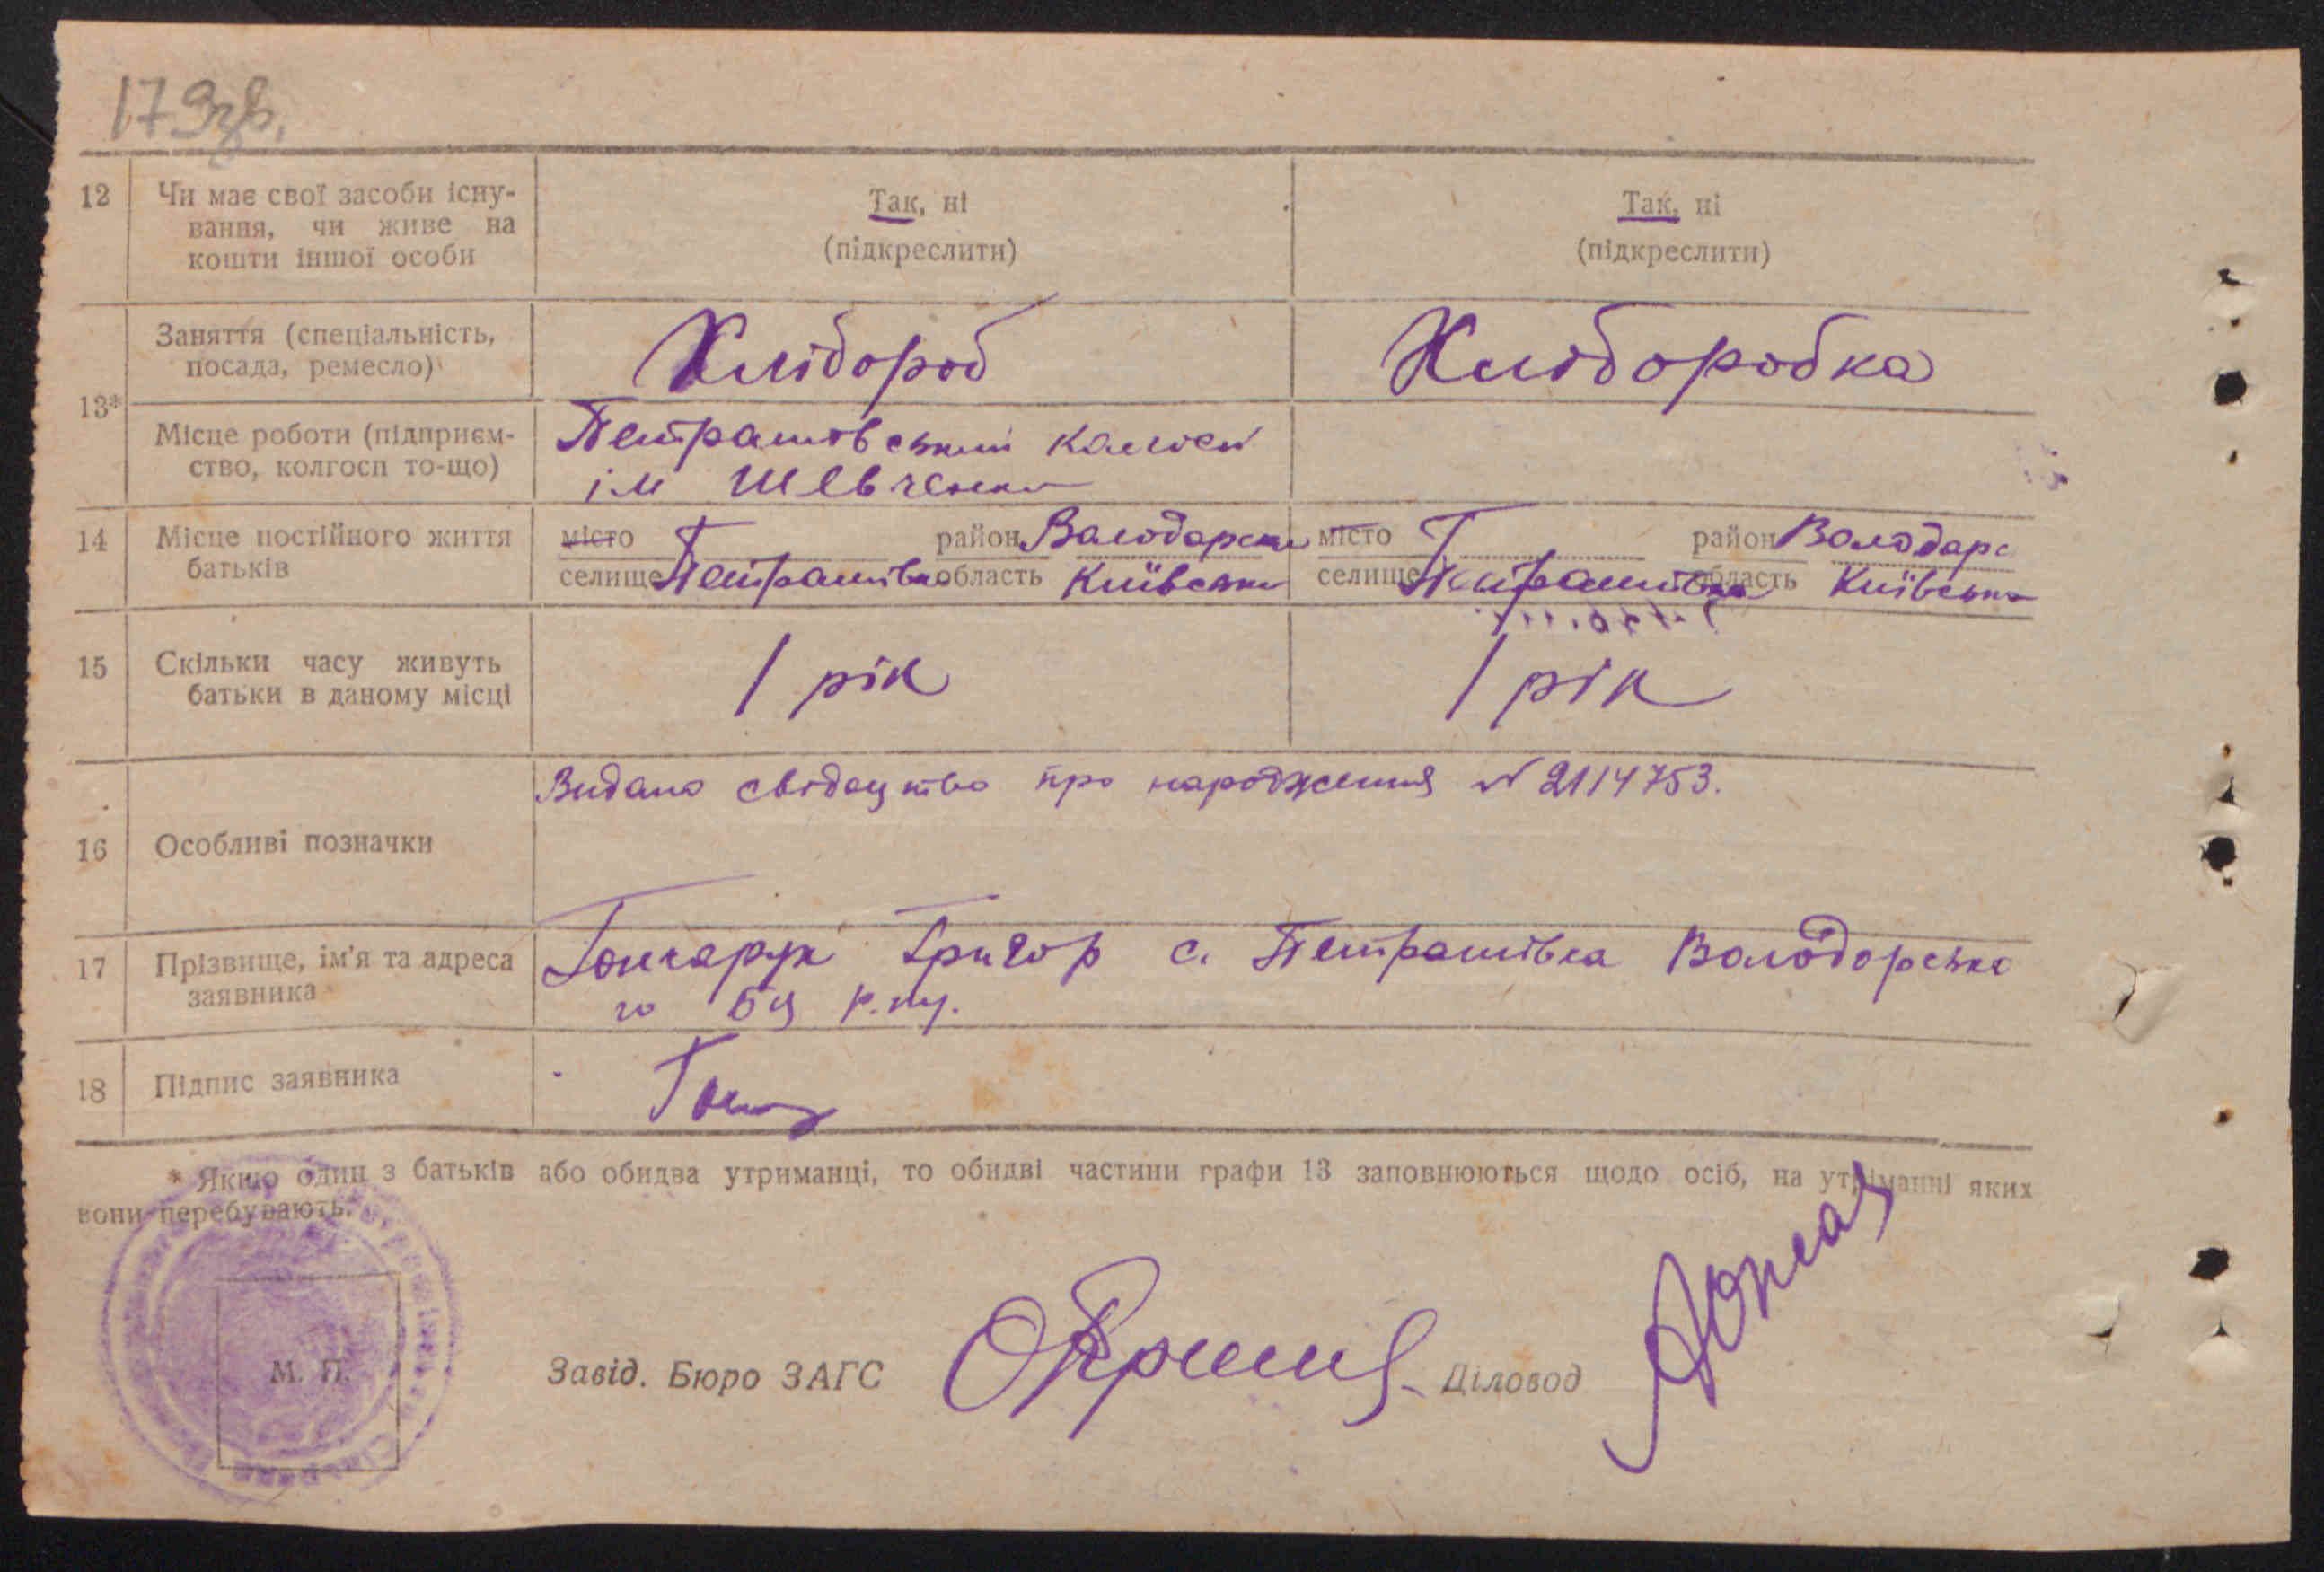 179зв.
12 Чи має свої засоби існу- Так, ні Так, ні
вання, чи живе на (підкреслити) (підкреслити)
кошти іншої особи
13* Заняття (спеціальність, Хлібороб Хліборобка
посада, ремесло)
Місце роботи (підприєм- Петрашовський
ство, колгосп то-що) ім Шевченка
14 Місце постійного життя місто район Володарськ місто район Володарс
батьків селище Петрашівка область Київська селище Петрашівка область Київська
15 Скільки часу живуть 1 рік 1 рік
батьки в даному місці
16 Особливі позначки Видано свідоцтво про народження N 2114753.
17 Прізвище, ім'я та адреса Гончарук Григор с. Петрашівка Володорсько
заявника го БЦ
18 Підпис заявника
* Якщо один з батьків або обидва утриманці, то обидві частини графи 13 заповнюються щодо осіб, на утриманні яких
вони перебувають.
М. П. Завід. Бюро ЗАГС Діловод